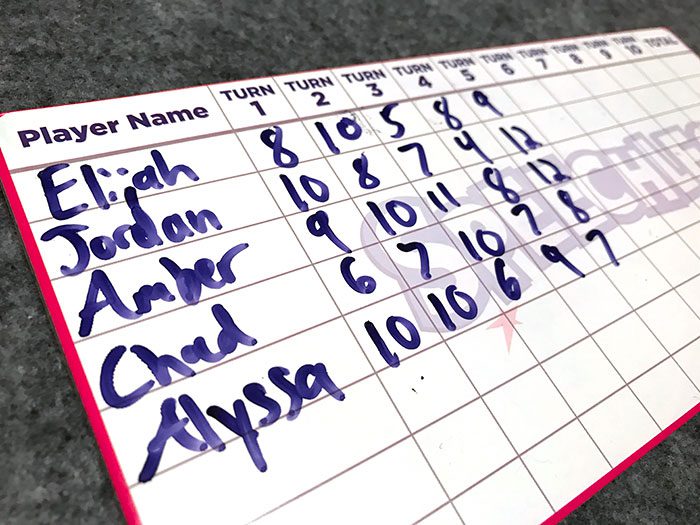 Player Name TURN 1 TURN 2 TURN 3 TURN 4 TURN 5 TURN 6 TURN 7 TURN 8 TURN 9 TURN 10 TOTAL
Elijah 8 10 5 8 9
Jordan 10 8 7 4 12
Amber 9 10 11 8 12
Chad 6 7 10 7 8
Alyssa 10 10 6 9 7